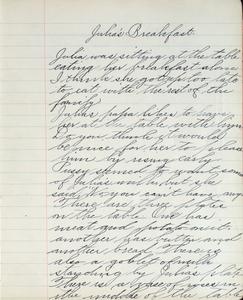 Julia's Breakfast.
Julia was sitting at the table
eating her breakfast alone
I think she got up too late
to eat with the rest of the
family.
Julia's papa likes to have
her at the table with him
Do you think it would
be nice for her to please
him by rising early
Pussy seemed to want some
of Julia's but she
said No you can't have any
There are three plates
on the table One has
meat and potatoes
another has butter and
another bread There is
also a goblet of milk
standing by Julia's plate
There is a vase of roses in
the middle of the table